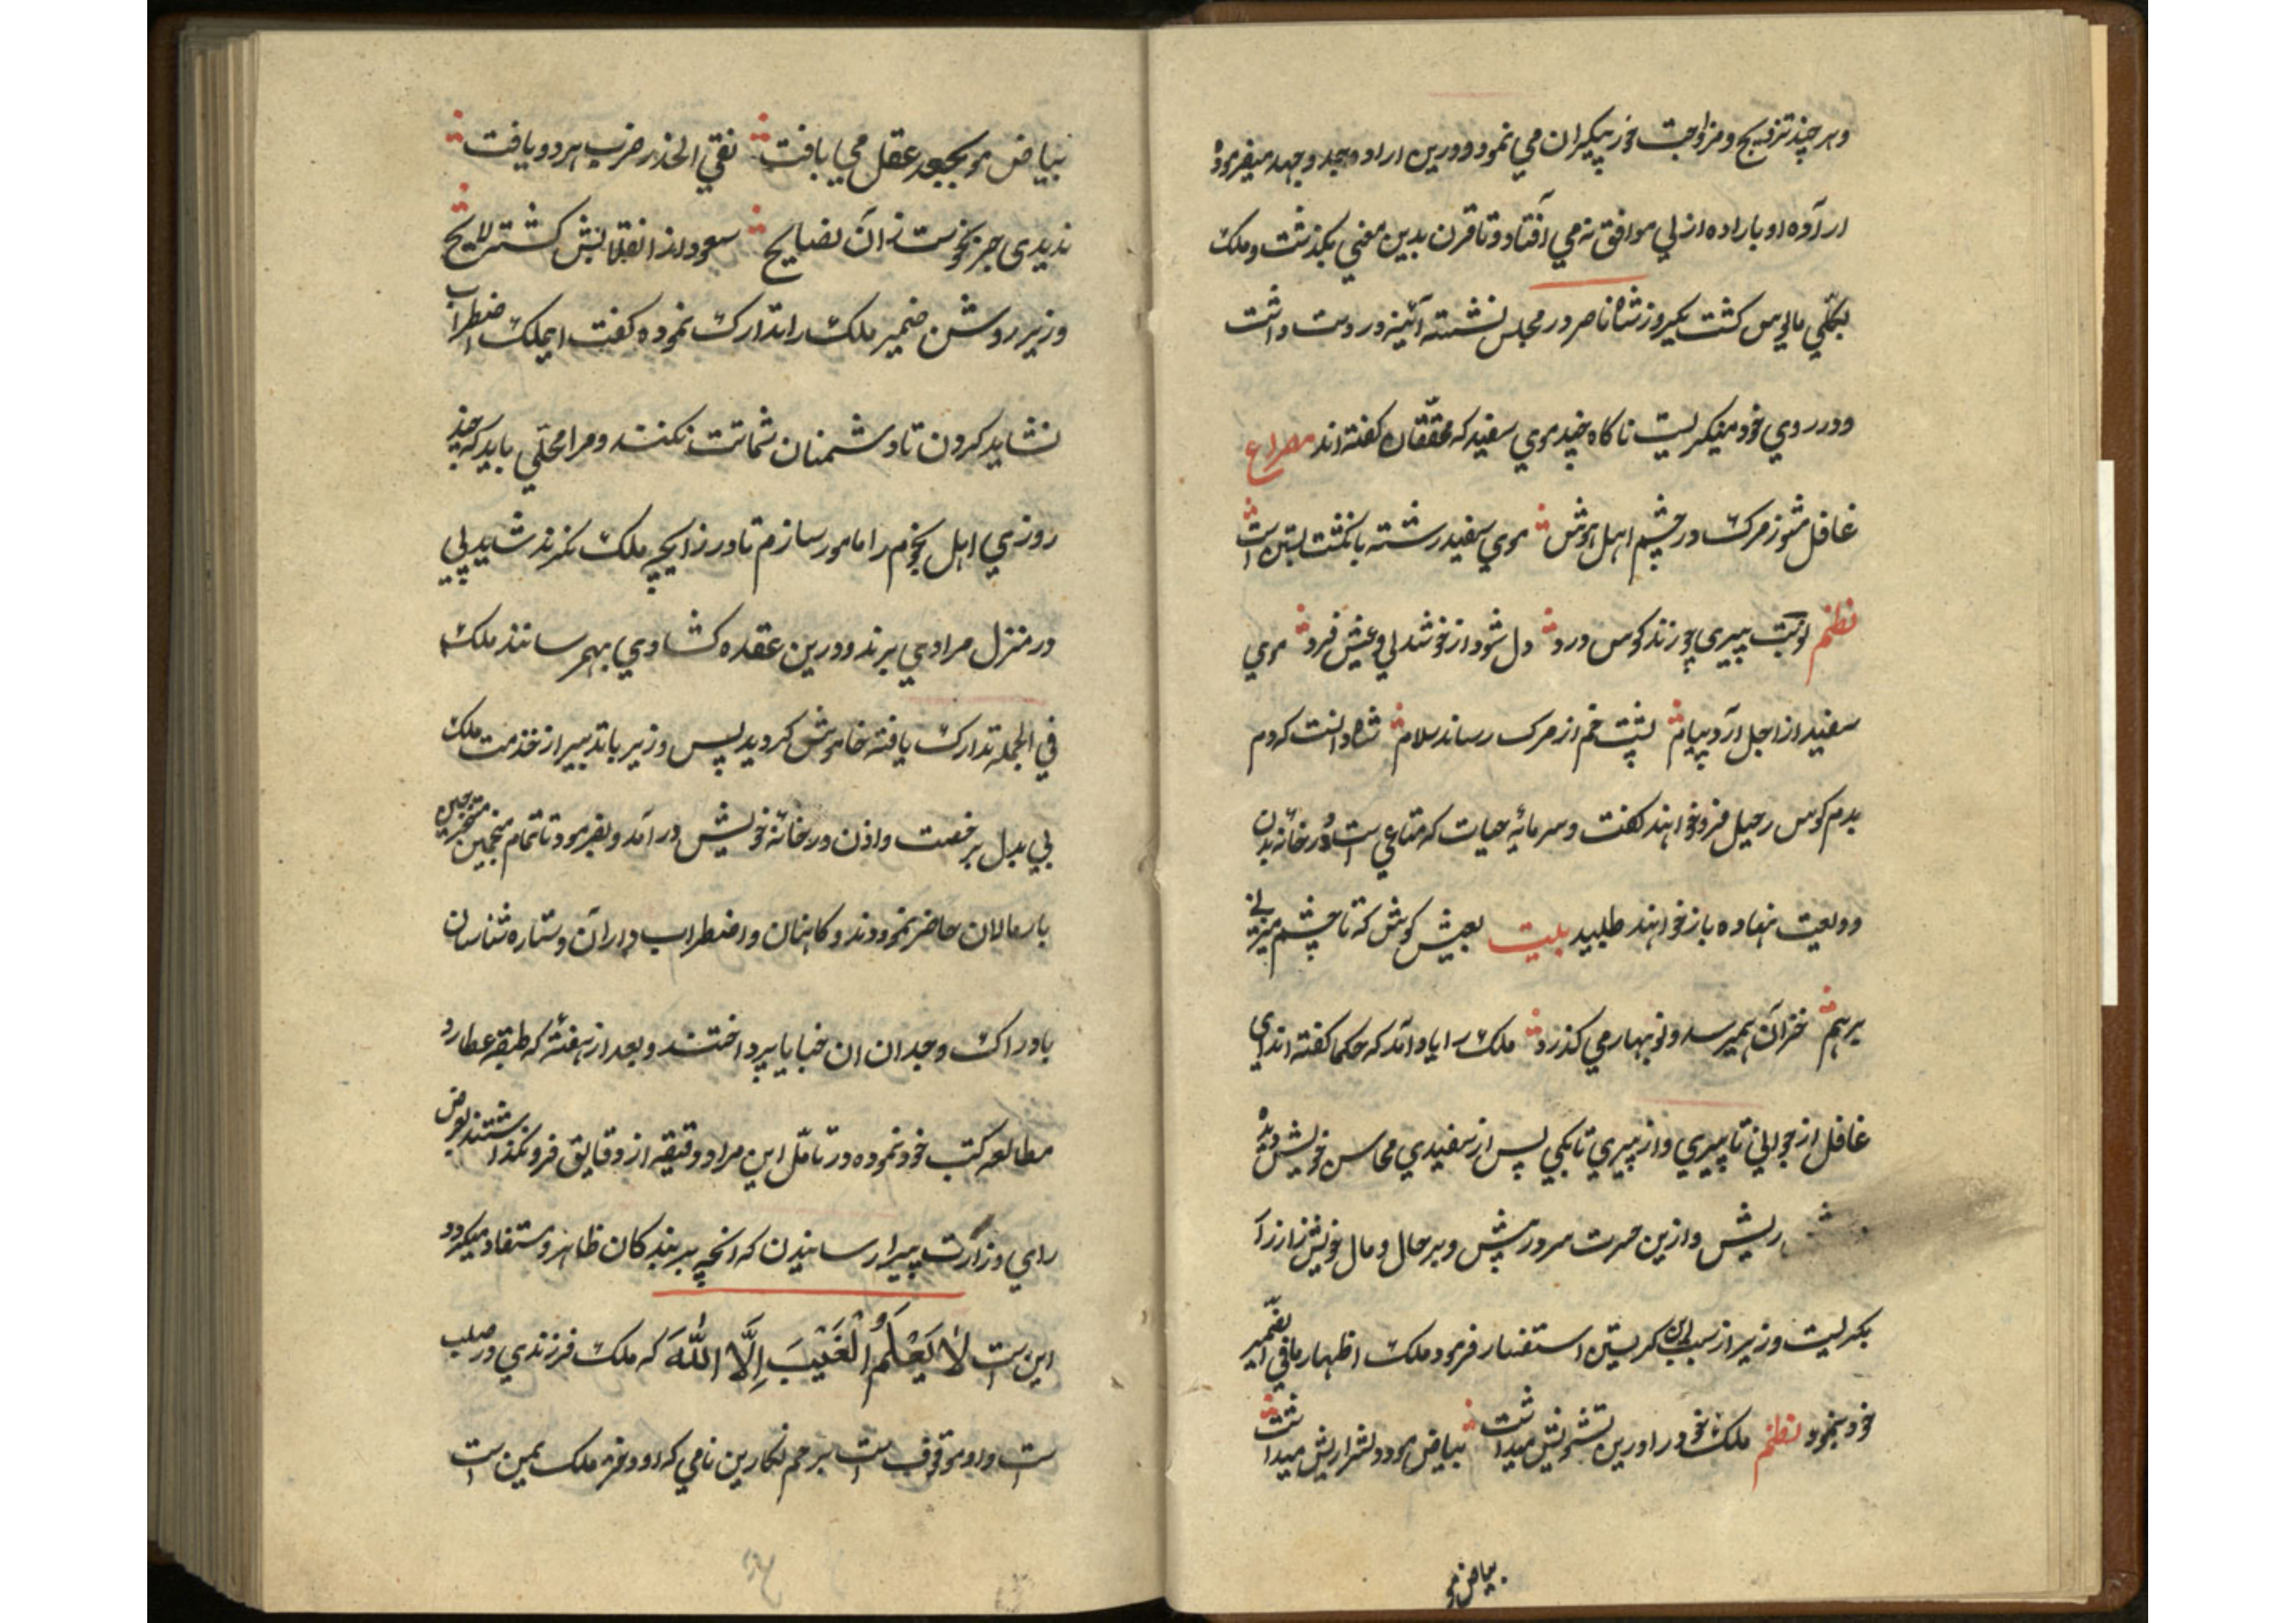 وهر چند تزویج و مزاوجت خور پیکران می نمود و درین اراده و جد و جهد میفرمود
اراده او باراده ازلی موافق نه می آفتاد و تا قرن بدین معنی بگذشت و ملک
بکلّی مایوس کشت یکروز شاه ناصر در مجلس نشسته آئینه در دست داشت
و در روی خود میگریست ناکاه چند موی سفید که محقّقان کفته اند مصراع
غافل مشو ز مرک که در چشم اهل هوش موی سفید رشته بانکشت بستن است
نظم نوبت پیری چو زند کوس درد دل شود از خوشدلی و عیش فرد موی
سفید از اجل آرد پیام پشت خم از مرک رساند سلام شاه دانست که دم
بدم کوس رحیل فرو خواهند کفت و سرمایهٔ حیات که متاعی است در خانه بدن
ودیعت نهاده باز خواهند طلبید بیت بعیش کوش که تا چشم میزنی
برهم خزان همیرسد و نوبهار می کذرد ملک را یاد آمد که حکما کفته اند ای
غافل از جوانی تا پیری و از پیری تا بکی پس از سفیدی محاسن خویش دیده
ریش و ازین حسرت سر در پیش و بر حال و مال خویش زار زار
بکریست وزیر از سبب کریستن استفسار فرمود ملک اظهار مافی الضمیر
خود بنمود نظم ملک خود را درین تشویش میداشت بیاض مو دو نشر ریش میداشت
بیاض مو
بیاض مو بجعد عقل می بافت نفی الحذر ضرب هر دو یافت
ندیدی جز نحوست زان نضایح سعود از انقلابش کشته لایح
وزیر روشن ضمیر ملک را تدارک نموده کفت ایملک اضطراب
نشاید کردن تا دشمنان شماتت نکنند و مرا محلّی باید که چند
روزی اهل نجوم را مامور سازم تا در زایچه ملک نکرند شاید پی
در منزل مرادی برند و درین عقده کشادی بهم رسانند ملک
فی الجمله تدارک یافته خاموش کردید پس وزیر با تدبیر از خدمت ملک
بی بدل برخصت و اذن در خانه خویش در آمد و بفرمود تا تمام منجمین متبحرین
با رمالان حاضر نمودند و کاهنان و اضطراب داران و ستاره شناسان
بادراک وجدان ان خبایا پرداختند و بعد از هفته که طبقه عطارد
مطالعه کتب خود نموده در تامّل این مراد دقیقه از دقایق فرو نکذاشتند بعرض
رای وزارت پیرا رسانیدن که انچه بر بندکان ظاهر و مستفاد میکردد
این ست لَا یَعْلَمُ الْغَیْبَ اِلَّا اللّٰهَ که ملک فرزندی در صلب
ست و او موقوف ست برحم نکارین نامی که او دختر ملک یمن است